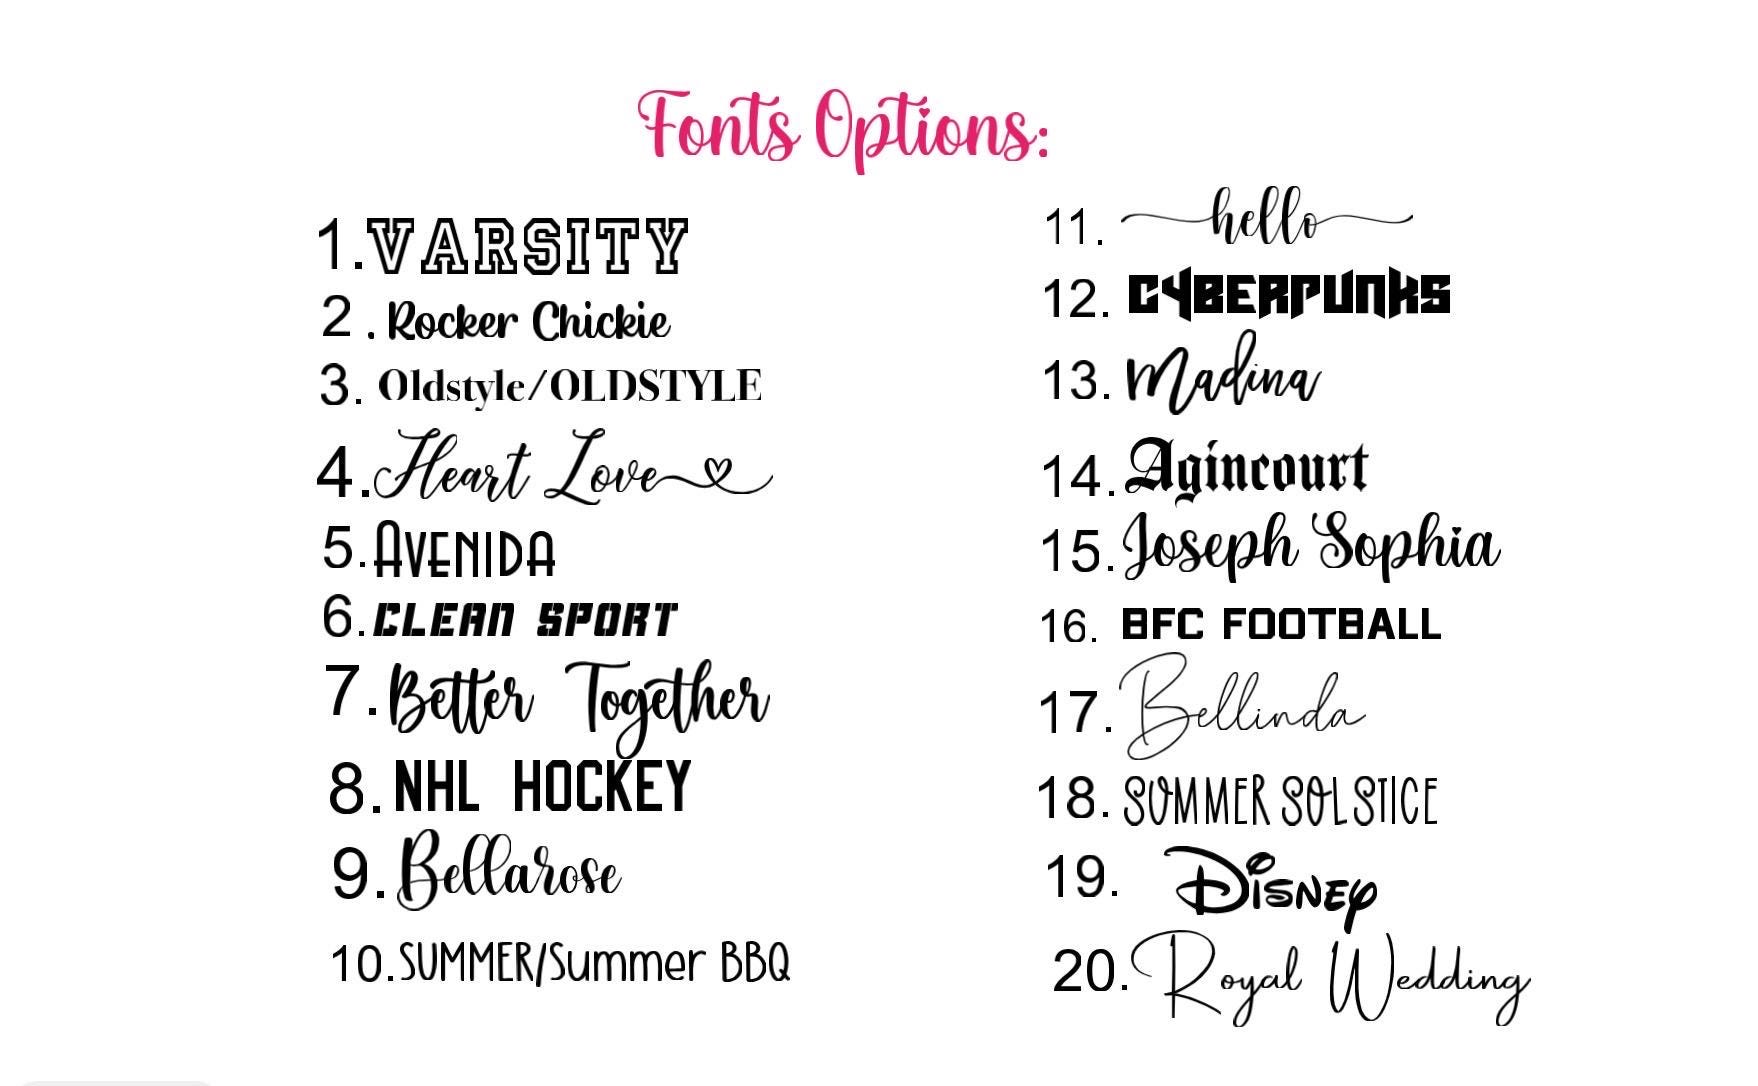 Fonts Options:
1. VARSITY
2 . Rocker Chickie
3. Oldstyle/OLDSTYLE
4. Heart Love
5. AVENIDA
6. CLEAN SPORT
7. Better Together
8. NHL HOCKEY
9. Bellarose
10. SUMMER/Summer BBQ
11. hello
12. CYBERPUNKS
13. Madina
14. Agincourt
15. Joseph Sophia
16. BFC FOOTBALL
17. Bellinda
18. SUMMER SOLSTICE
19. Disney
20. Royal Wedding